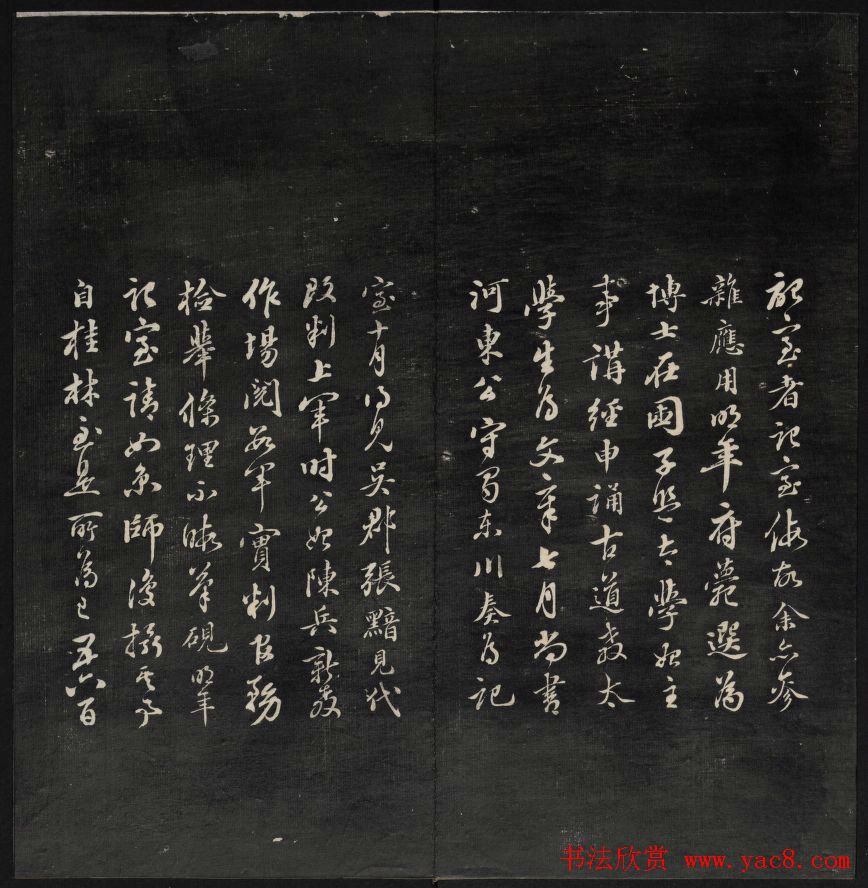 記室者記室假故余亦參
雜應用明年府薨選為
博士在國子監太學始主
事講經申誦古道教太
學生為文章七月尚書
河東公守蜀東川奏為記
室十月得見吳郡張黯見代
改判上軍時公始陳兵新教
作場閱數軍實判官務
撿舉條理不暇筆硯明年
記室請如京師復攝其事
自桂林至是所為已五六百
书法欣赏 www.yac8.com